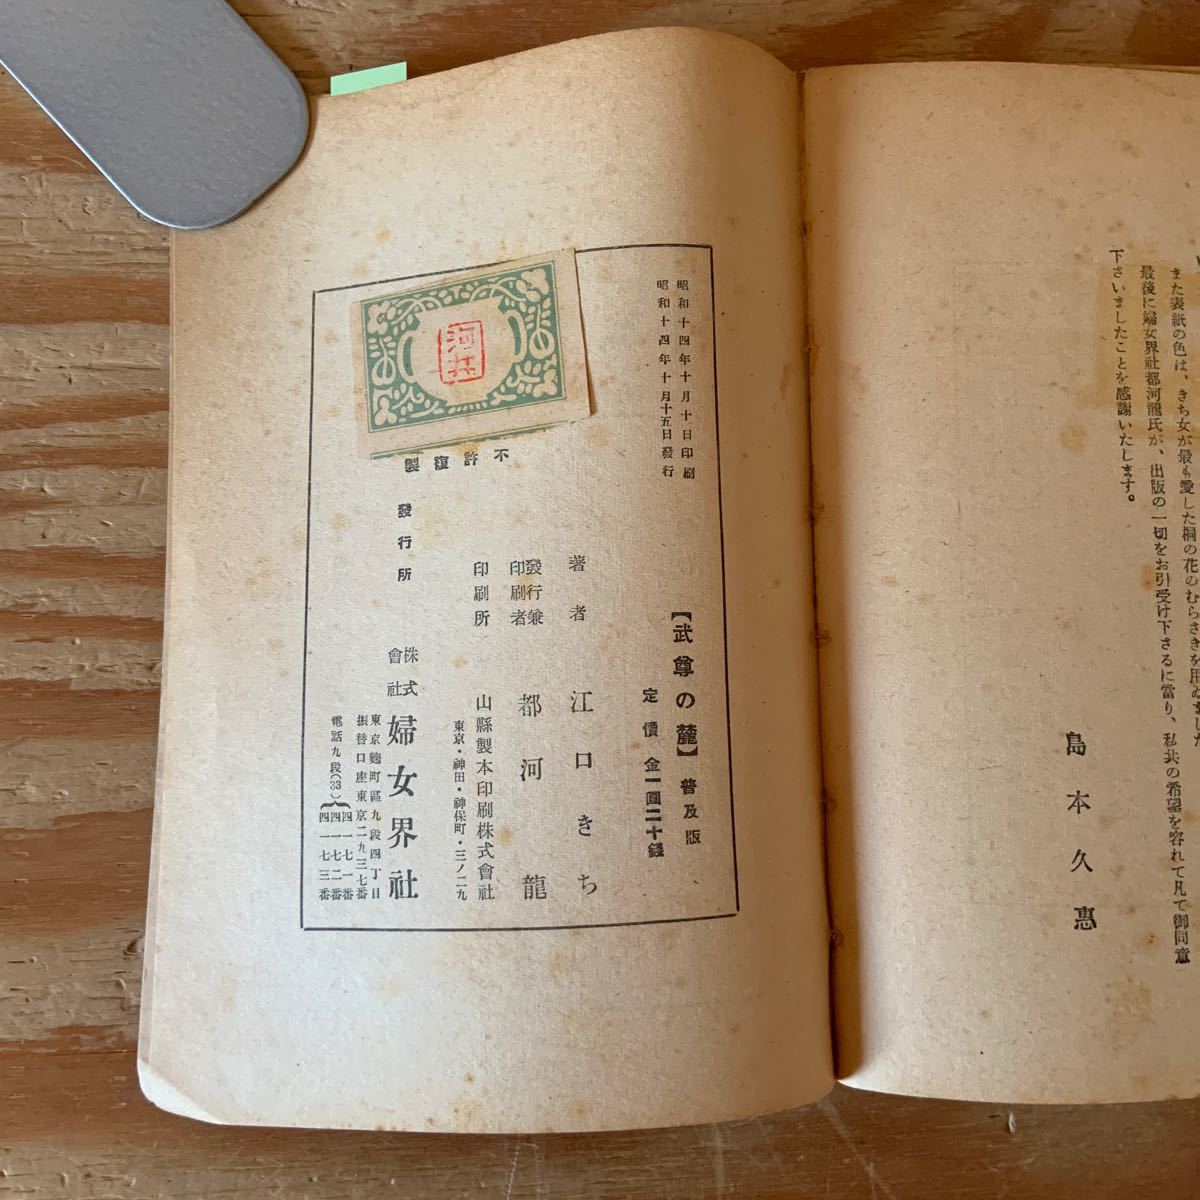 また表紙の色は、きち女が最も愛した桐の花のむらさきを用ゐました
最後に婦女界社都河龍氏が、出版の一切をお引受け下さるに當り、私共の希望を容れて凡て御同意
下さいましたことを感謝いたします。
島本久惠
昭和十四年十月十日印刷
昭和十四年十月十五日發行
【武尊の麓】普及版
定價金一圓二十錢
著者 江口きち
發行兼印刷者 都河龍
印刷所 山縣製本印刷株式會社
東京・神田・神保町・三ノ二九
不許複製
河井
發行所 株式會社 婦女界社
東京麴町區九段四丁目
振替口座東京二九三七番
電話九段(33)
四一七一番
四一七二番
四一七三番